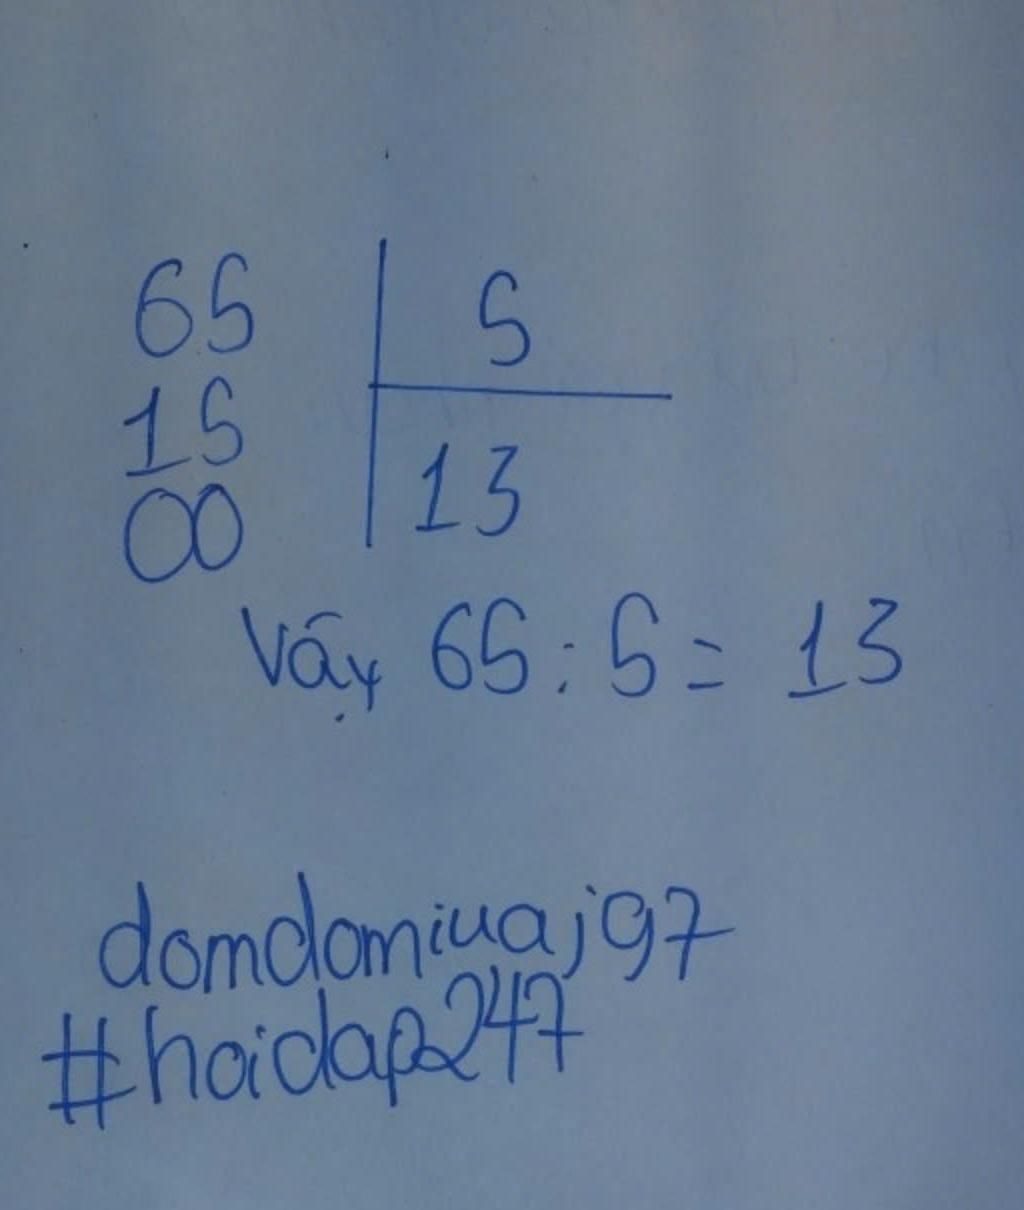 65 5
15
00 13
Vậy 65 : 5 = 13
domdomiuaj97
#hoidap247